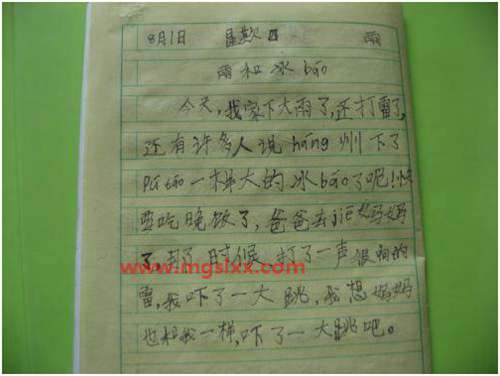 8月1日 雨
雨和冰báo
今天,我家下大雨了,还打雷了,
还有许多人说háng州下了
pú táo一样大的冰báo了呢!快
要吃晚饭了,爸爸去jiē妈妈
了, 时候,打了一声很响的
www.mgslxx.com
雷,我吓了一大跳,我想妈妈
也和我一样,吓了一大跳吧。